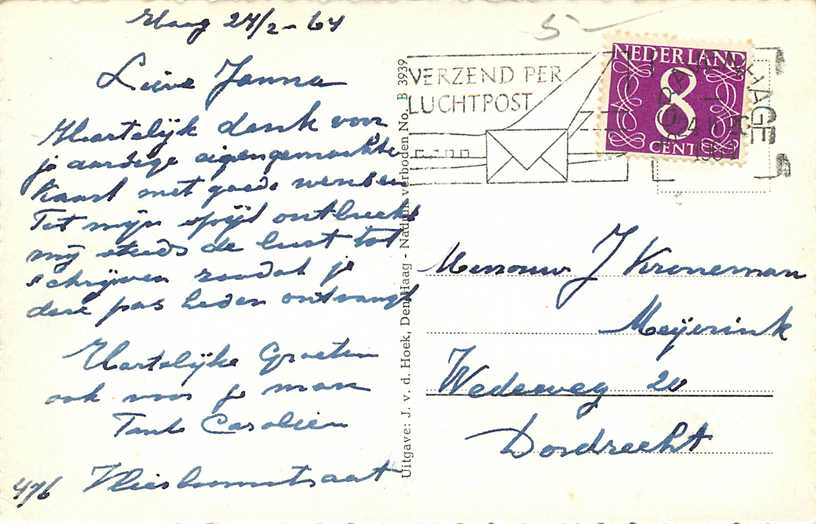 Haag 24/2-64
Lieve Janna
Hartelijk dank voor
je aardige eigengemaakte
kaart met goede wensen
Tot mijn spijt ontbreekt
mij steeds de lust tot
schrijven zoodat je
deze pas heden ontvangt
Hartelijke Groeten
ook voor je man
Tante Carolien
476 Vlierboomstraat
Uitgave: J. v. d. Hoek, Den Haag - Nadruk verboden No. B 3939
5
VERZEND PER
LUCHTPOST
NEDERLAND
8
CENT
Mevrouw J Kroneman
Meijerink
Wedeweg 20
Dordrecht